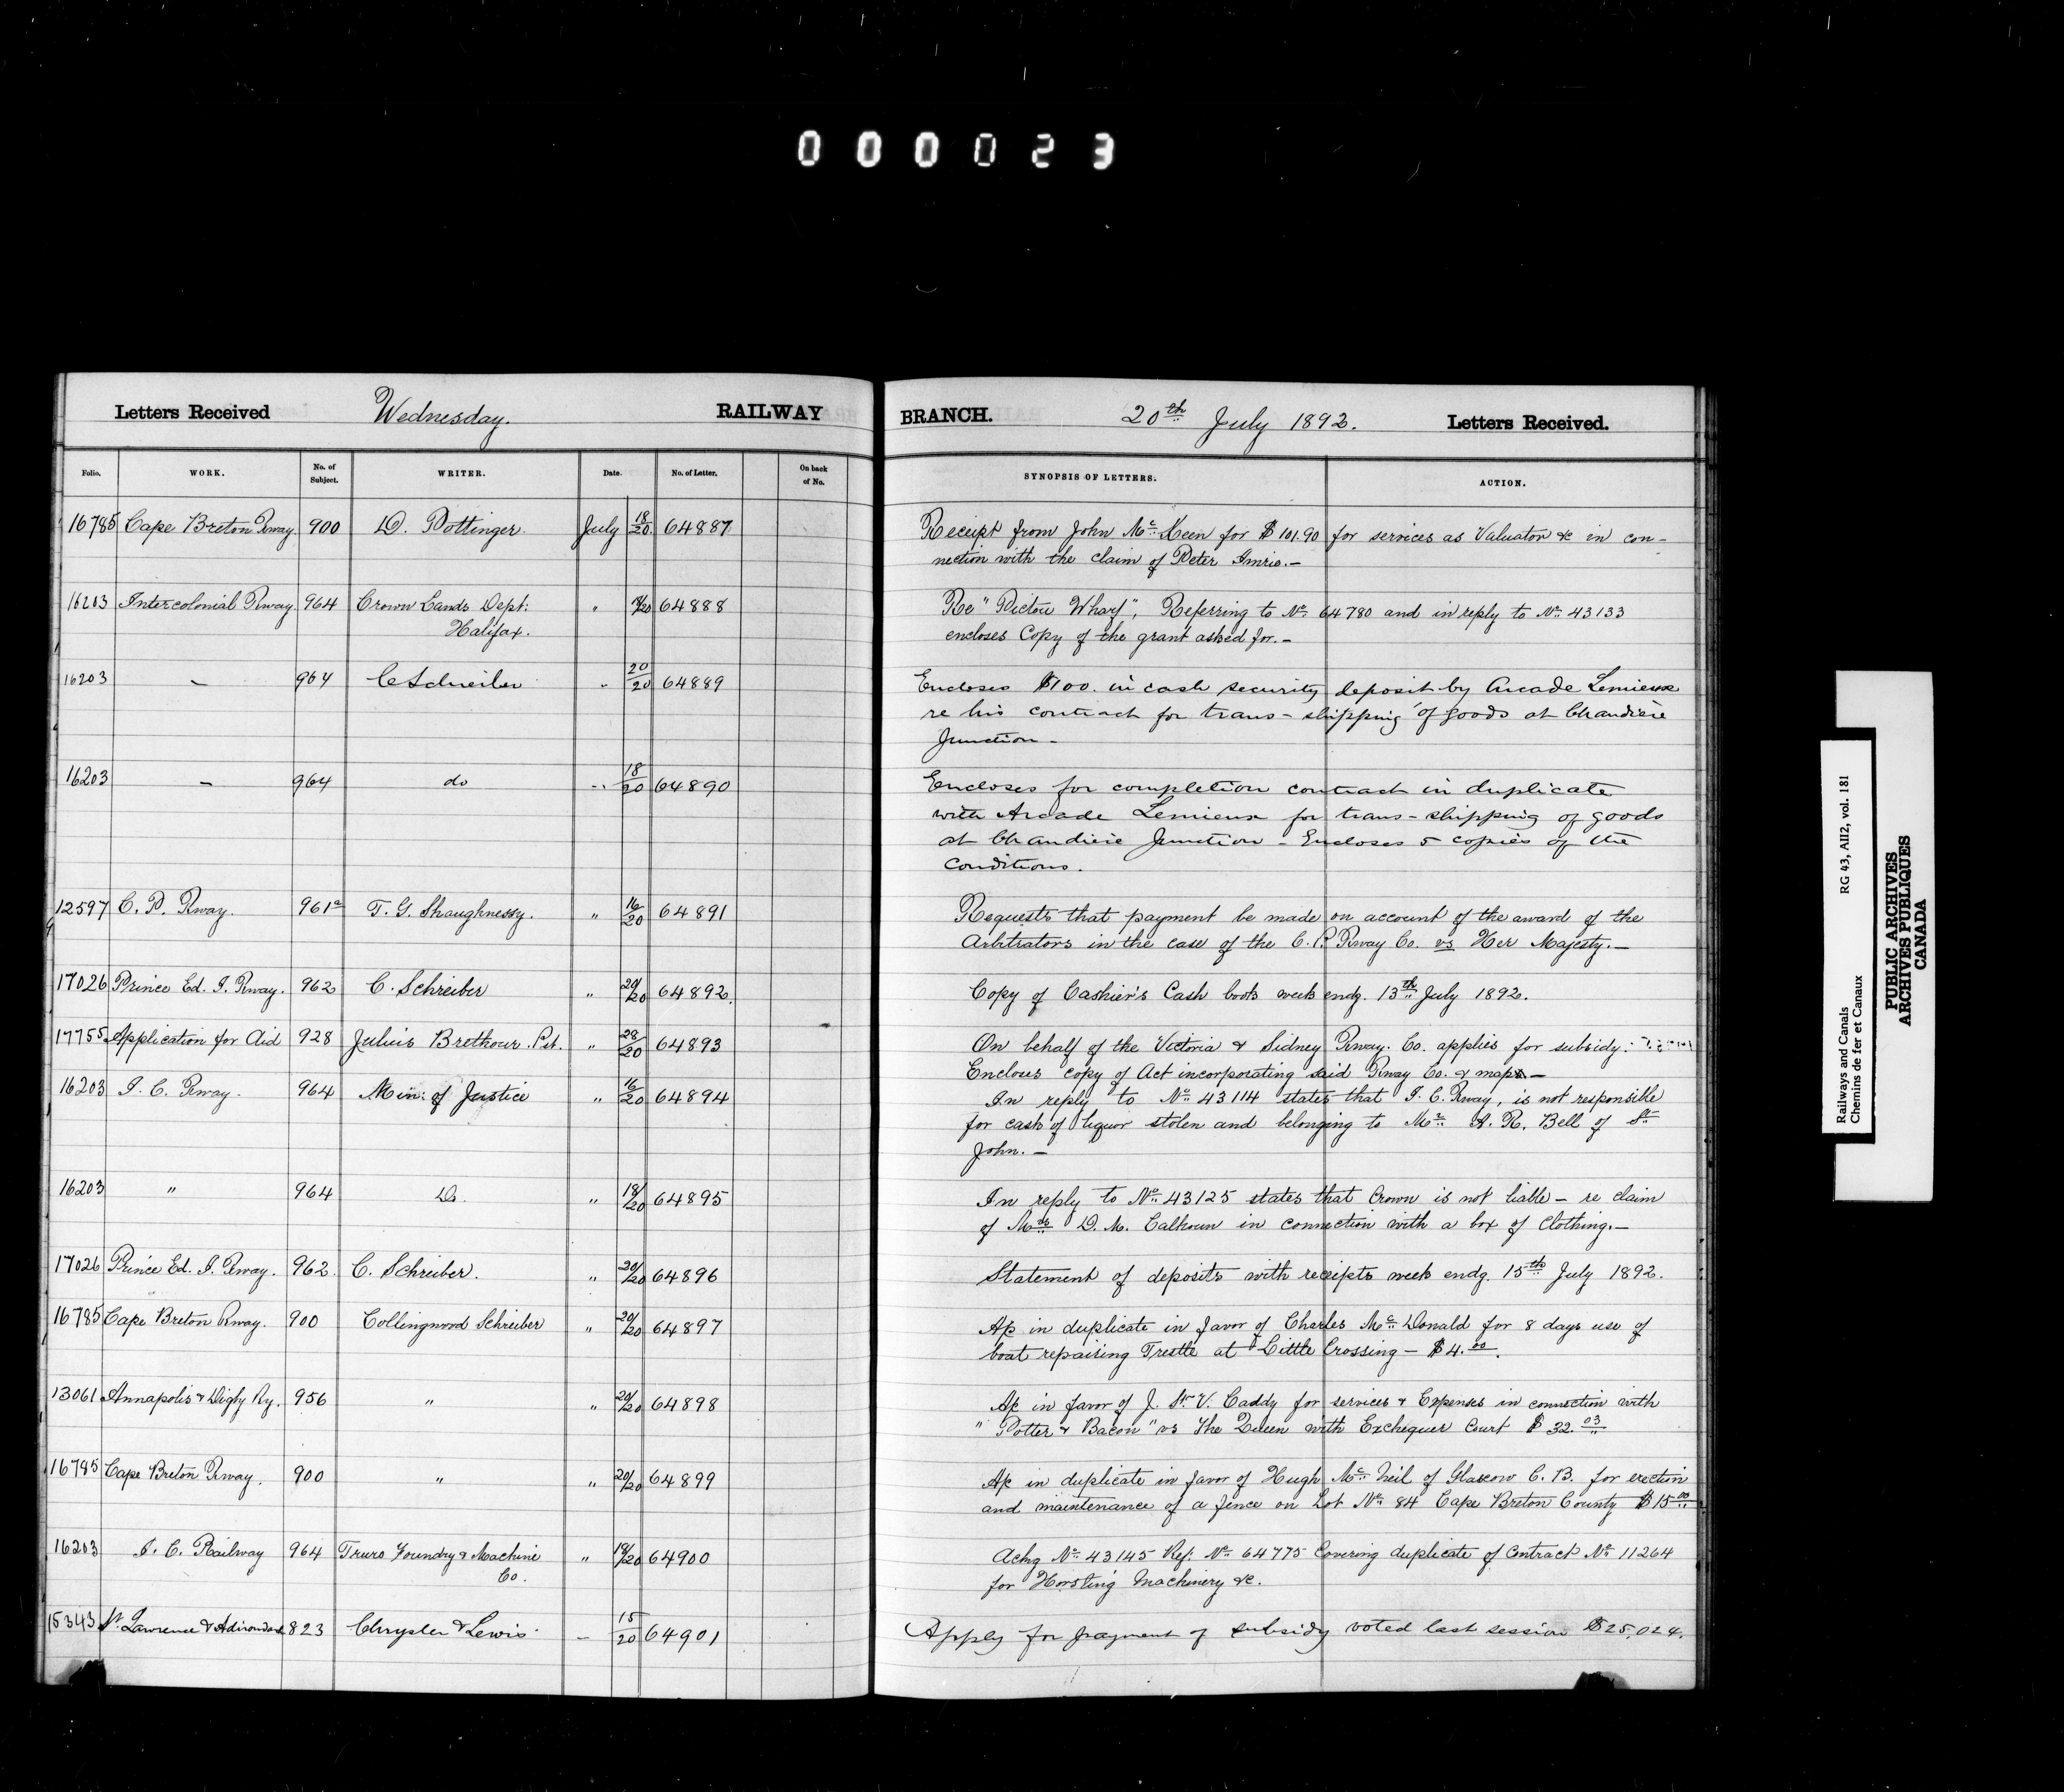 000023
Letters Received Wednesday. RAILWAY BRANCH. 20th July 1892. Letters Received.
Folio. WORK. No. of Subject. WRITER. Date. No. of Letter. On back of No. SYNOPSIS OF LETTERS. ACTION.
16785 Cape Breton Rway. 900 D. Pottinger. July 18/20 64887 Receipt from John Mc Keen for $101.90 for services as Valuator &c in con-
nection with the claim of Peter Imrie.-
16203 Intercolonial Rway. 964 Crown Lands Dept: " 64888 Re "Pictou Wharf", Referring to No. 64780 and in reply to No. 43133
Halifax. encloses Copy of the grant asked for.-
16203 - 964 C Schreiber " 20/20 64889 Encloses $100. in cash security deposit by Arcade Lemieux
re his contract for trans-shipping of goods at Chaudiere
Junction-
16203 - 964 do " 18/20 64890 Encloses for completion contract in duplicate
with Arcade Lemieux for trans-shipping of goods
at Chaudiere Junction - Encloses 5 copies of the
Conditions.
12597 C. P. Rway. 961a T. G. Shaughnessy. " 16/20 64891 Requests that payment be made on account of the award of the
Arbitrators in the case of the C. P. Rway Co. vs Her Majesty.-
17026 Prince Ed. I. Rway. 962 C. Schreiber " 20/20 64892. Copy of Cashier's Cash book week endg. 13th July 1892.
17755 Application for Aid 928 Julius Brethour. Pst. " 28/20 64893 On behalf of the Victoria & Sidney Rway. Co. applies for subsidy:
Encloses copy of Act incorporating said Rway Co. & map.-
16203 I. C. Rway. 964 Min: of Justice " 16/20 64894 In reply to No. 43114 states that I. C. Rway, is not responsible
for cask of liquor stolen and belonging to Mr. A. R. Bell of St
John.-
16203 " 964 Do. " 18/20 64895 In reply to No. 43125 states that Crown is not liable - re claim
of Mrs D. M. Calhoun in connection with a box of Clothing.-
17026 Prince Ed. I. Rway. 962. C. Schreiber. " 20/20 64896 Statement of deposits with receipts week endg. 15th July 1892.
16785 Cape Breton Rway. 900 Collingwood Schreiber " 20/20 64897 A/c in duplicate in favor of Charles Mc Donald for 8 days use of
boat repairing Trestle at Little Crossing - $4.00.
13061 Annapolis & Digby Ry. 956 " " 20/20 64898 A/c in favor of J. St. V. Caddy for services & Expenses in connection with
"Potter & Bacon" vs The Queen with Exchequer Court $32.03
16785 Cape Breton Rway. 900 " " 20/20 64899 A/c in duplicate in favor of Hugh Mc Neil of Glascow C. B. for erection
and maintenance of a fence on Lot No. 84 Cape Breton County $15.00
16203 I. C. Railway 964 Truro Foundry & Machine " 64900 Ackg No. 43145 Ref. No. 64775 Covering duplicate of Contract No. 11264
Co. for Horsting Machinery &c.
15343 St. Lawrence & Adirondack 823 Chrysler & Lewis - 15/20 64901 Apply for payment of subsidy voted last session $25,024.
Railways and Canals RG 43, AII2, vol. 181
Chemins de fer et Canaux
PUBLIC ARCHIVES
ARCHIVES PUBLIQUES
CANADA